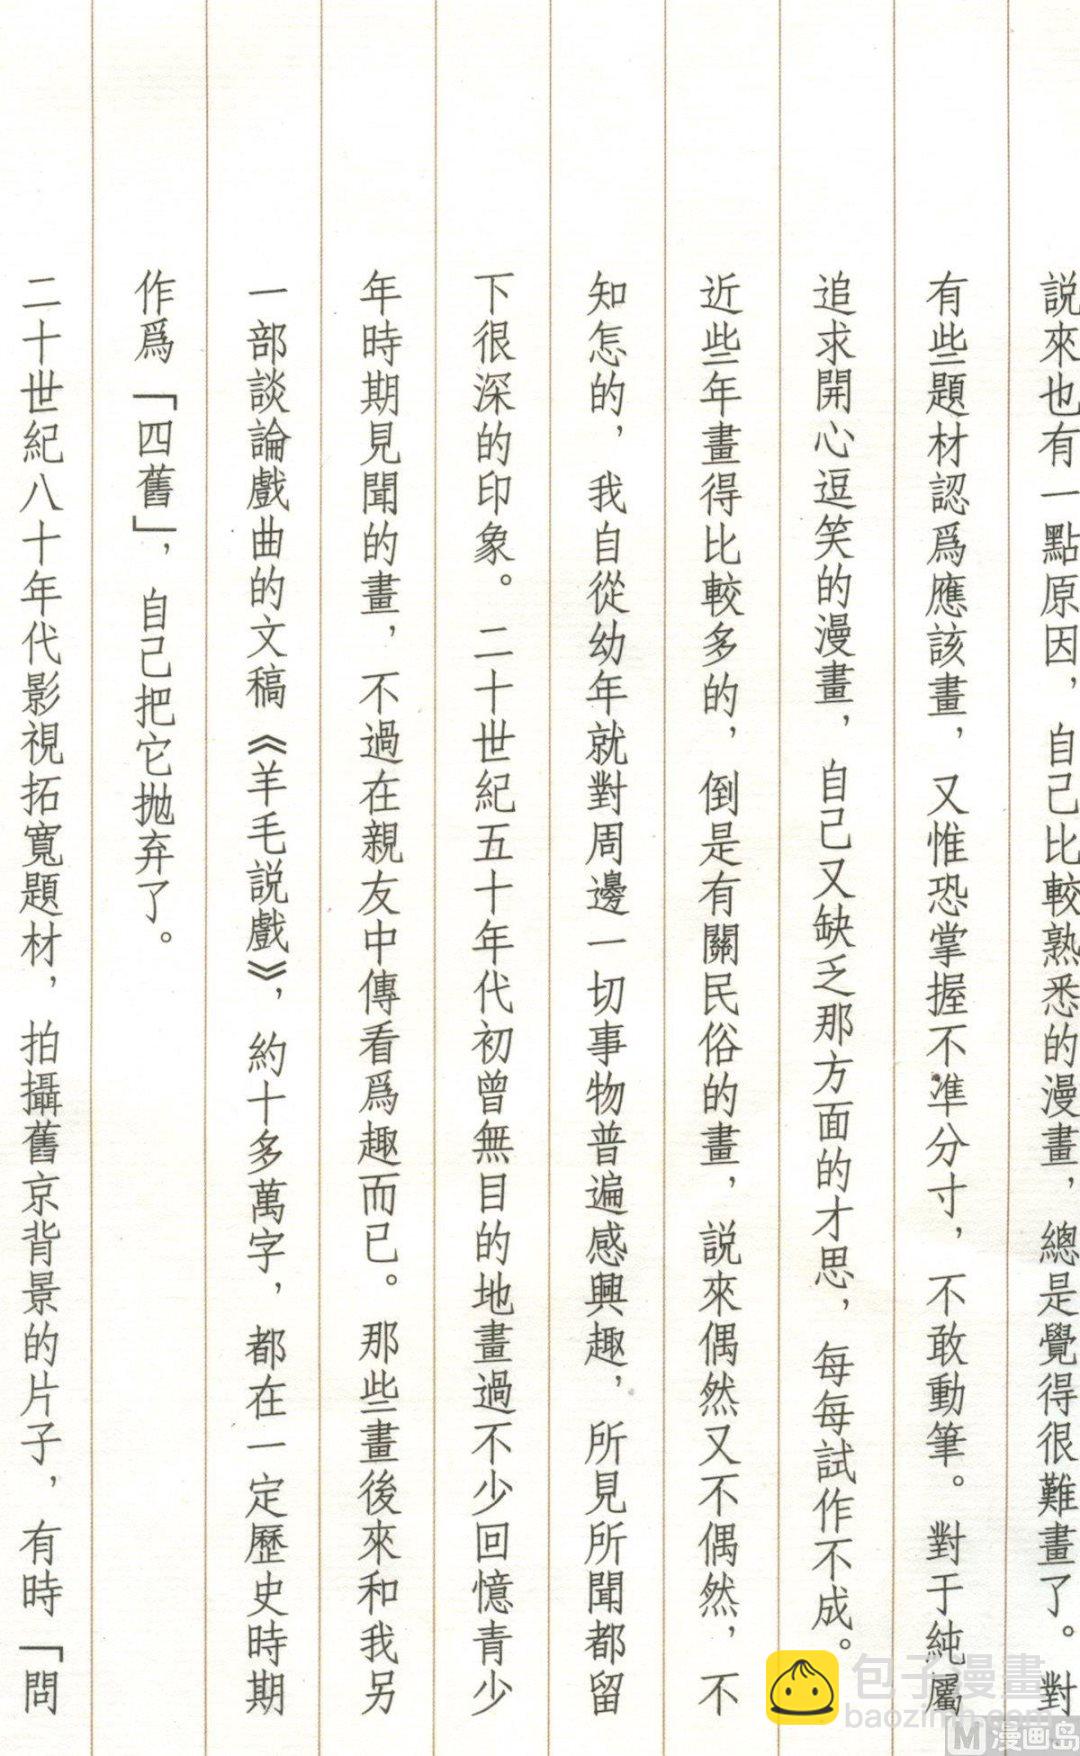 説來也有一點原因，自己比較熟悉的漫畫，總是覺得很難畫了。對
有些題材認爲應該畫，又惟恐掌握不準分寸，不敢動筆。對于純屬
追求開心逗笑的漫畫，自己又缺乏那方面的才思，每每試作不成。
近些年畫得比較多的，倒是有關民俗的畫，説來偶然又不偶然，不
知怎的，我自從幼年就對周邊一切事物普遍感興趣，所見所聞都留
下很深的印象。二十世紀五十年代初曾無目的地畫過不少回憶青少
年時期見聞的畫，不過在親友中傳看爲趣而已。那些畫後來和我另
一部談論戲曲的文稿《羊毛説戲》，約十多萬字，都在一定歷史時期
作爲「四舊」，自己把它抛弃了。
二十世紀八十年代影視拓寬題材，拍攝舊京背景的片子，有時「問
包子漫畫
baozimh.com
M漫画岛